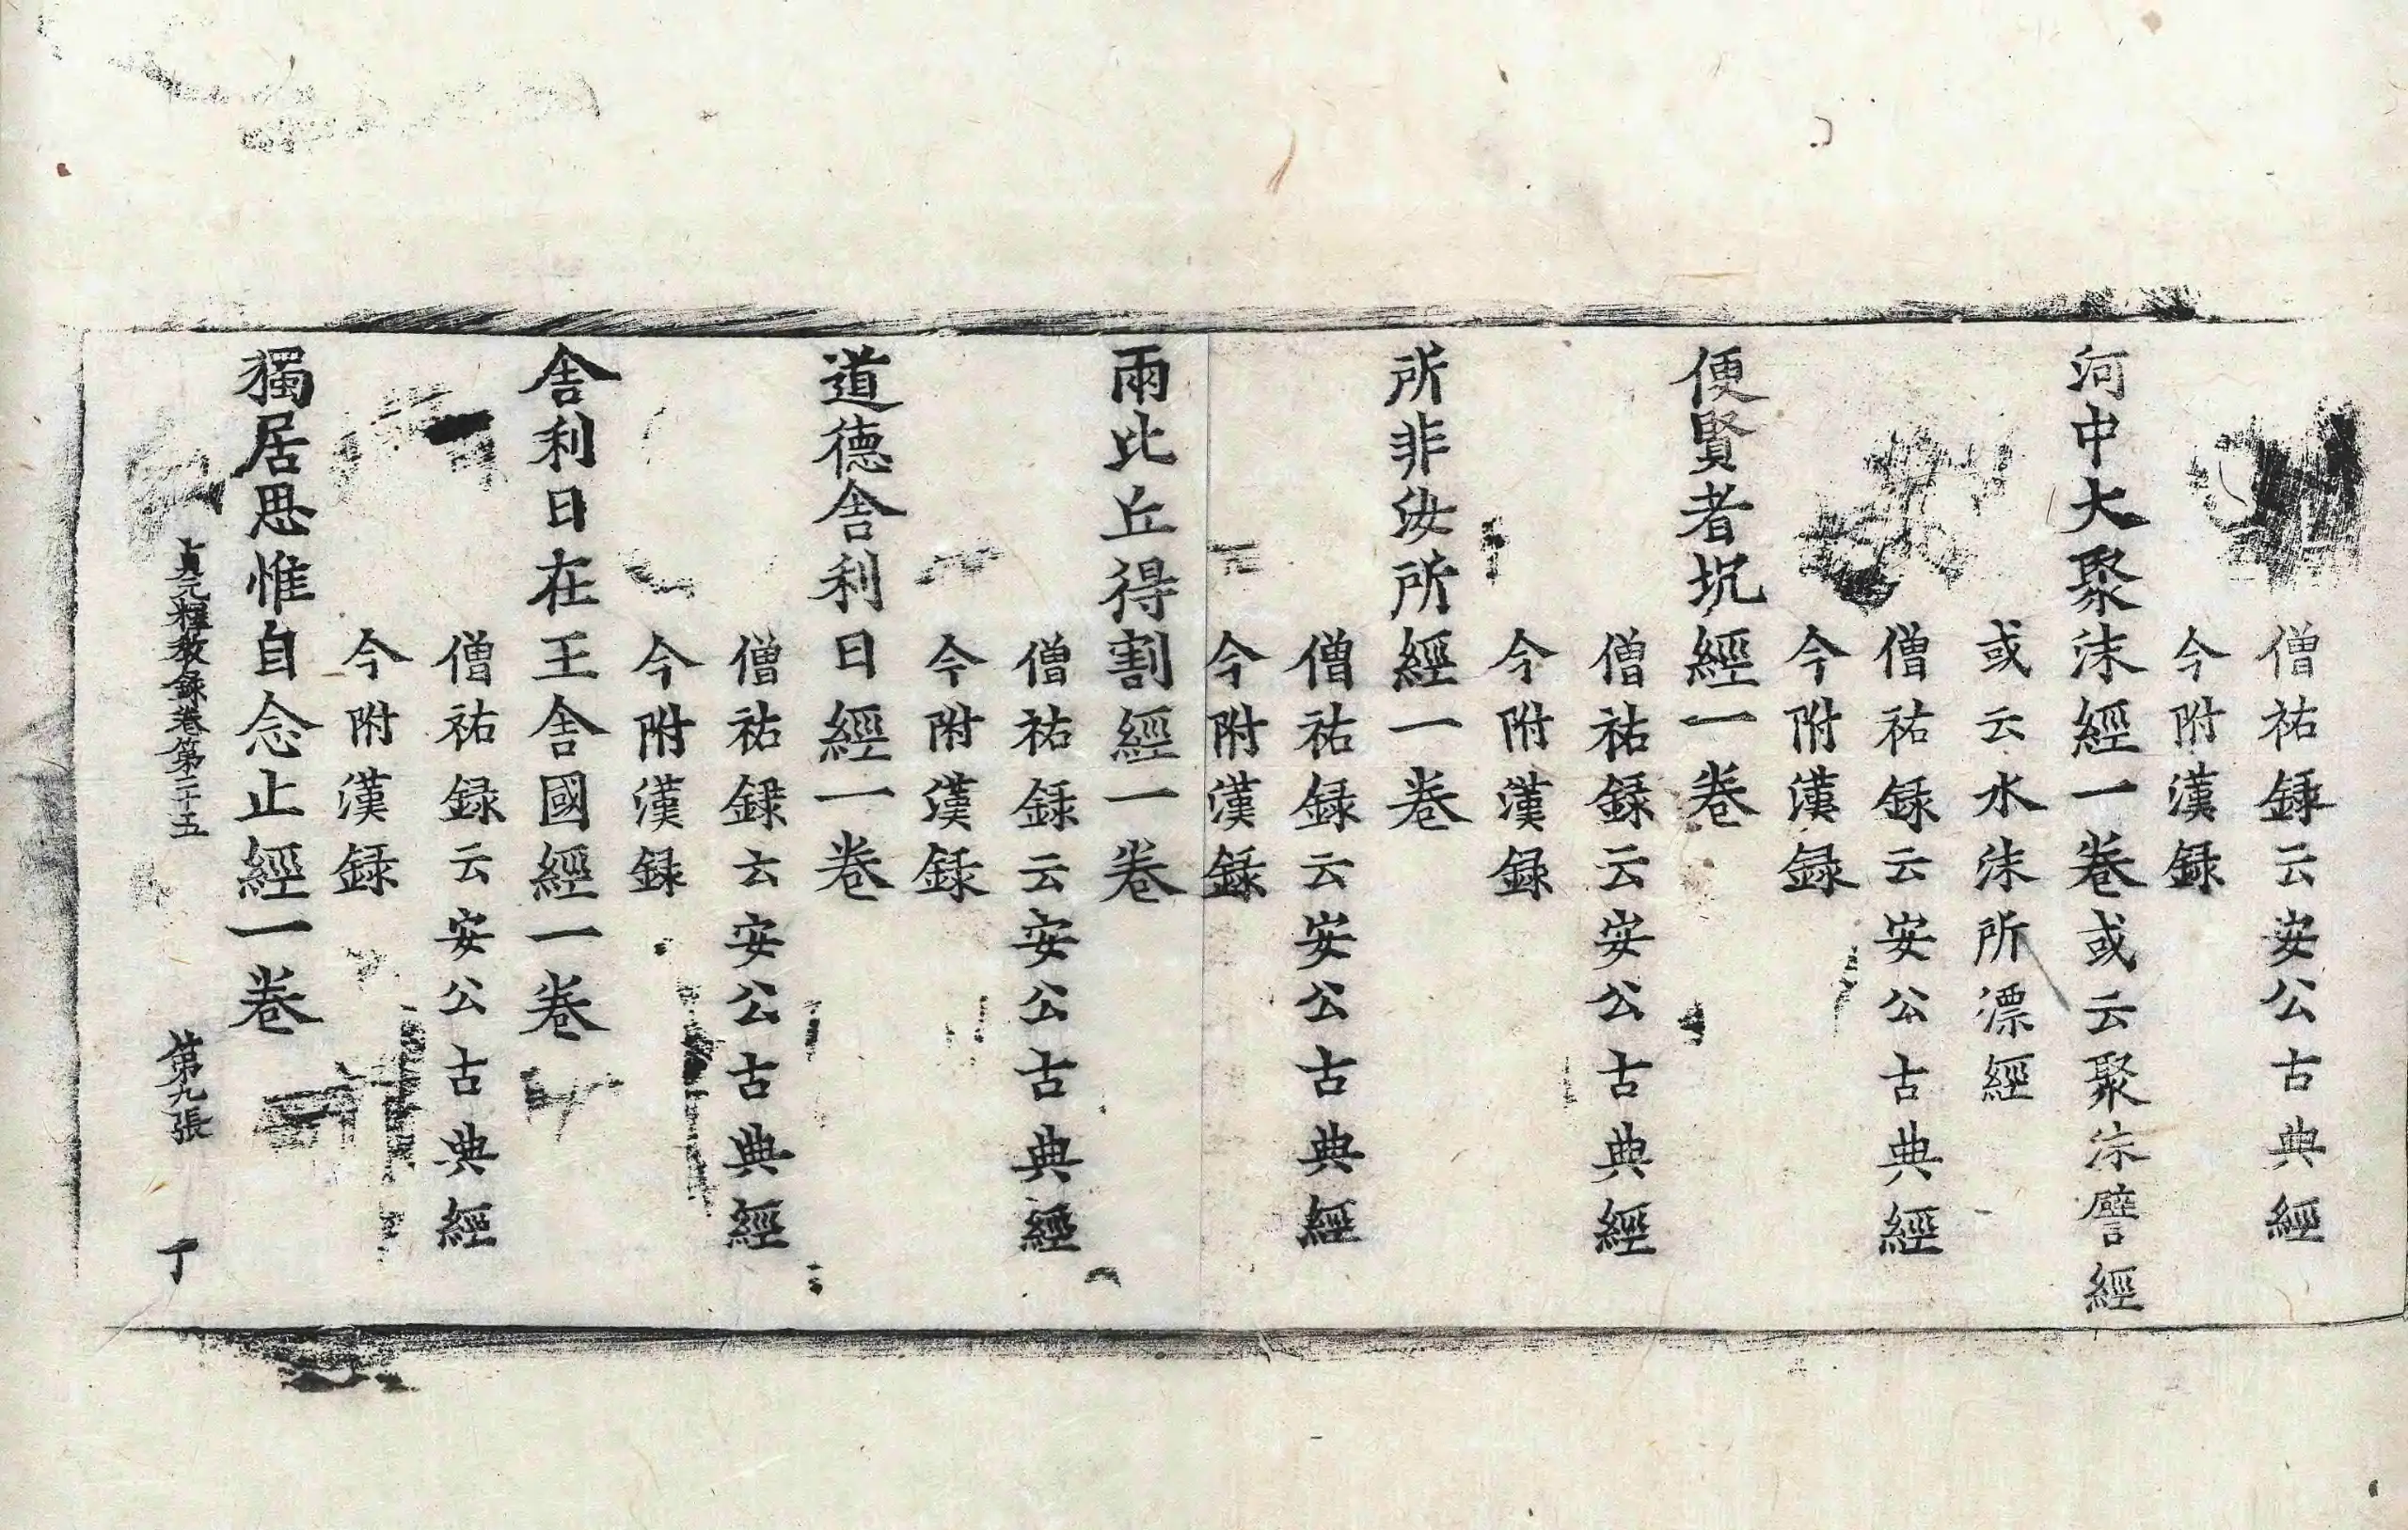 僧祐録云安公古典經
今附漢録
河中大聚沫經一卷或云聚沫譬經
或云水沫所漂經
僧祐録云安公古典經
今附漢録
便賢者坑經一卷
僧祐録云安公古典經
今附漢録
所非汝所經一卷
僧祐録云安公古典經
今附漢録
兩比丘得割經一卷
僧祐録云安公古典經
今附漢録
道德舍利日經一卷
僧祐録云安公古典經
今附漢録
舍利日在王舍國經一卷
僧祐録云安公古典經
今附漢録
獨居思惟自念止經一卷
貞元釋教録卷第二十五 第九張 丁